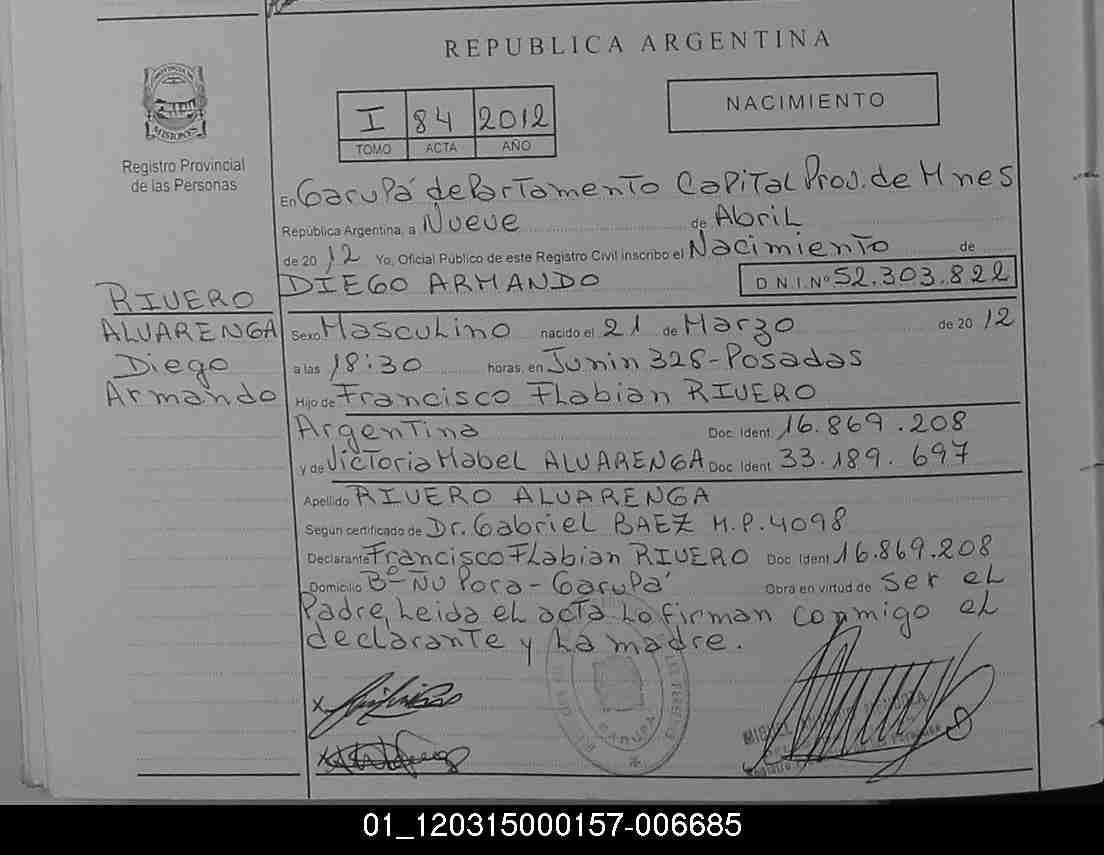 REPUBLICA ARGENTINA
PROVINCIA DE
MISIONES
Registro Provincial
de las Personas
I 84 2012
TOMO ACTA AÑO
NACIMIENTO
En Garupá departamento Capital Prov. de Mnes
República Argentina, a Nueve de Abril
de 2012 Yo, Oficial Público de este Registro Civil inscribo el Nacimiento de
DIEGO ARMANDO D N I. Nº 52.303.822
RIVERO
ALVARENGA
Diego
Armando
Sexo Masculino nacido el 21 de Marzo de 2012
a las 18:30 horas, en Junin 328-Posadas
Hijo de Francisco Flabian RIVERO
Argentina Doc. Ident. 16.869.208
y de Victoria Mabel ALVARENGA Doc Ident 33.189.697
Apellido RIVERO ALVARENGA
Según certificado de Dr. Gabriel BAEZ M.P. 4098
Declarante Francisco Flabian RIVERO Doc. Ident 16.869.208
Domicilio Bº Ñu Pora - Garupá Obra en virtud de ser el
Padre, Leida el acta lo firman conmigo el
declarante y La madre.
01_120315000157-006685